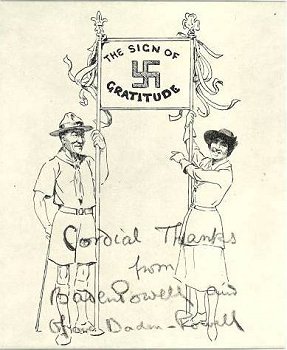 THE SIGN OF
GRATITUDE
Cordial Thanks
from
Baden Powell and
Olave Baden-Powell